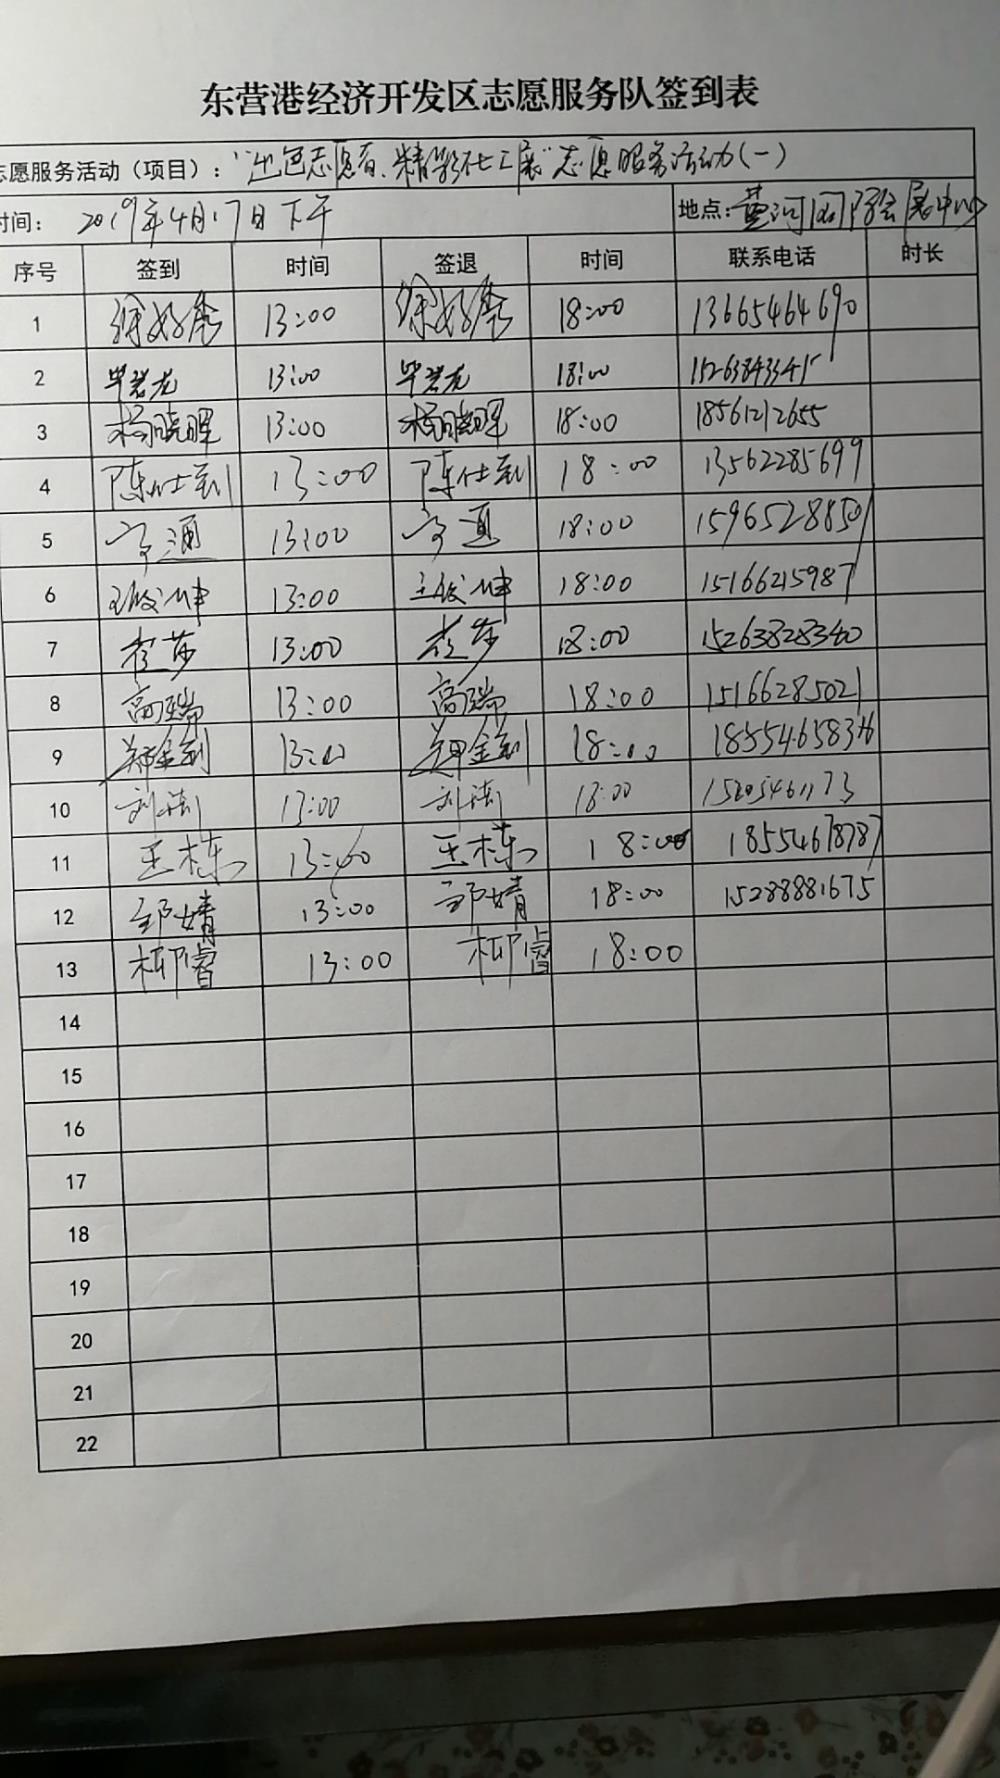 东营港经济开发区志愿服务队签到表
志愿服务活动（项目）："出色志愿者、精彩石化展"志愿服务活动(一)
时间： 2019年4月17日下午 地点：黄河国际会展中心
序号 签到 时间 签退 时间 联系电话 时长
1 徐好秀 13:00 徐好秀 18:00 13665464690
2 13:00 18:00
3 杨晓晖 13:00 杨晓晖 18:00 18561212655
4 陈仕剑 13:00 陈仕剑 18:00 13562285699
5 13:00 18:00 15965288501
6 王俊坤 13:00 王俊坤 18:00 15166215987
7 崔莎 13:00 崔莎 18:00 15263828340
8 高瑞 13:00 高瑞 18:00 15166285021
9 郑金剑 13:00 郑金剑 18:00
10 13:00 18:00 15205461173
11 王栋 13:00 王栋 18:00 18554678787
12 邹婧 13:00 邹婧 18:00 15288881675
13 柳睿 13:00 柳睿 18:00
14
15
16
17
18
19
20
21
22